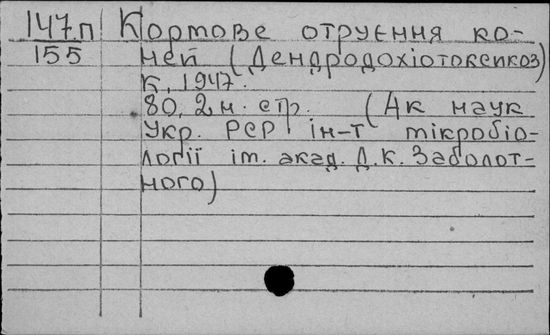 147п Кортове отруєння ко-
155 ней (Дендродохіотоксикоз)
К, 1947.
80, 2 н. стр. (Ак наук
Укр. РСР ін-т мікробіо-
логії ім. акад. Д. К. Заболот-
ного)